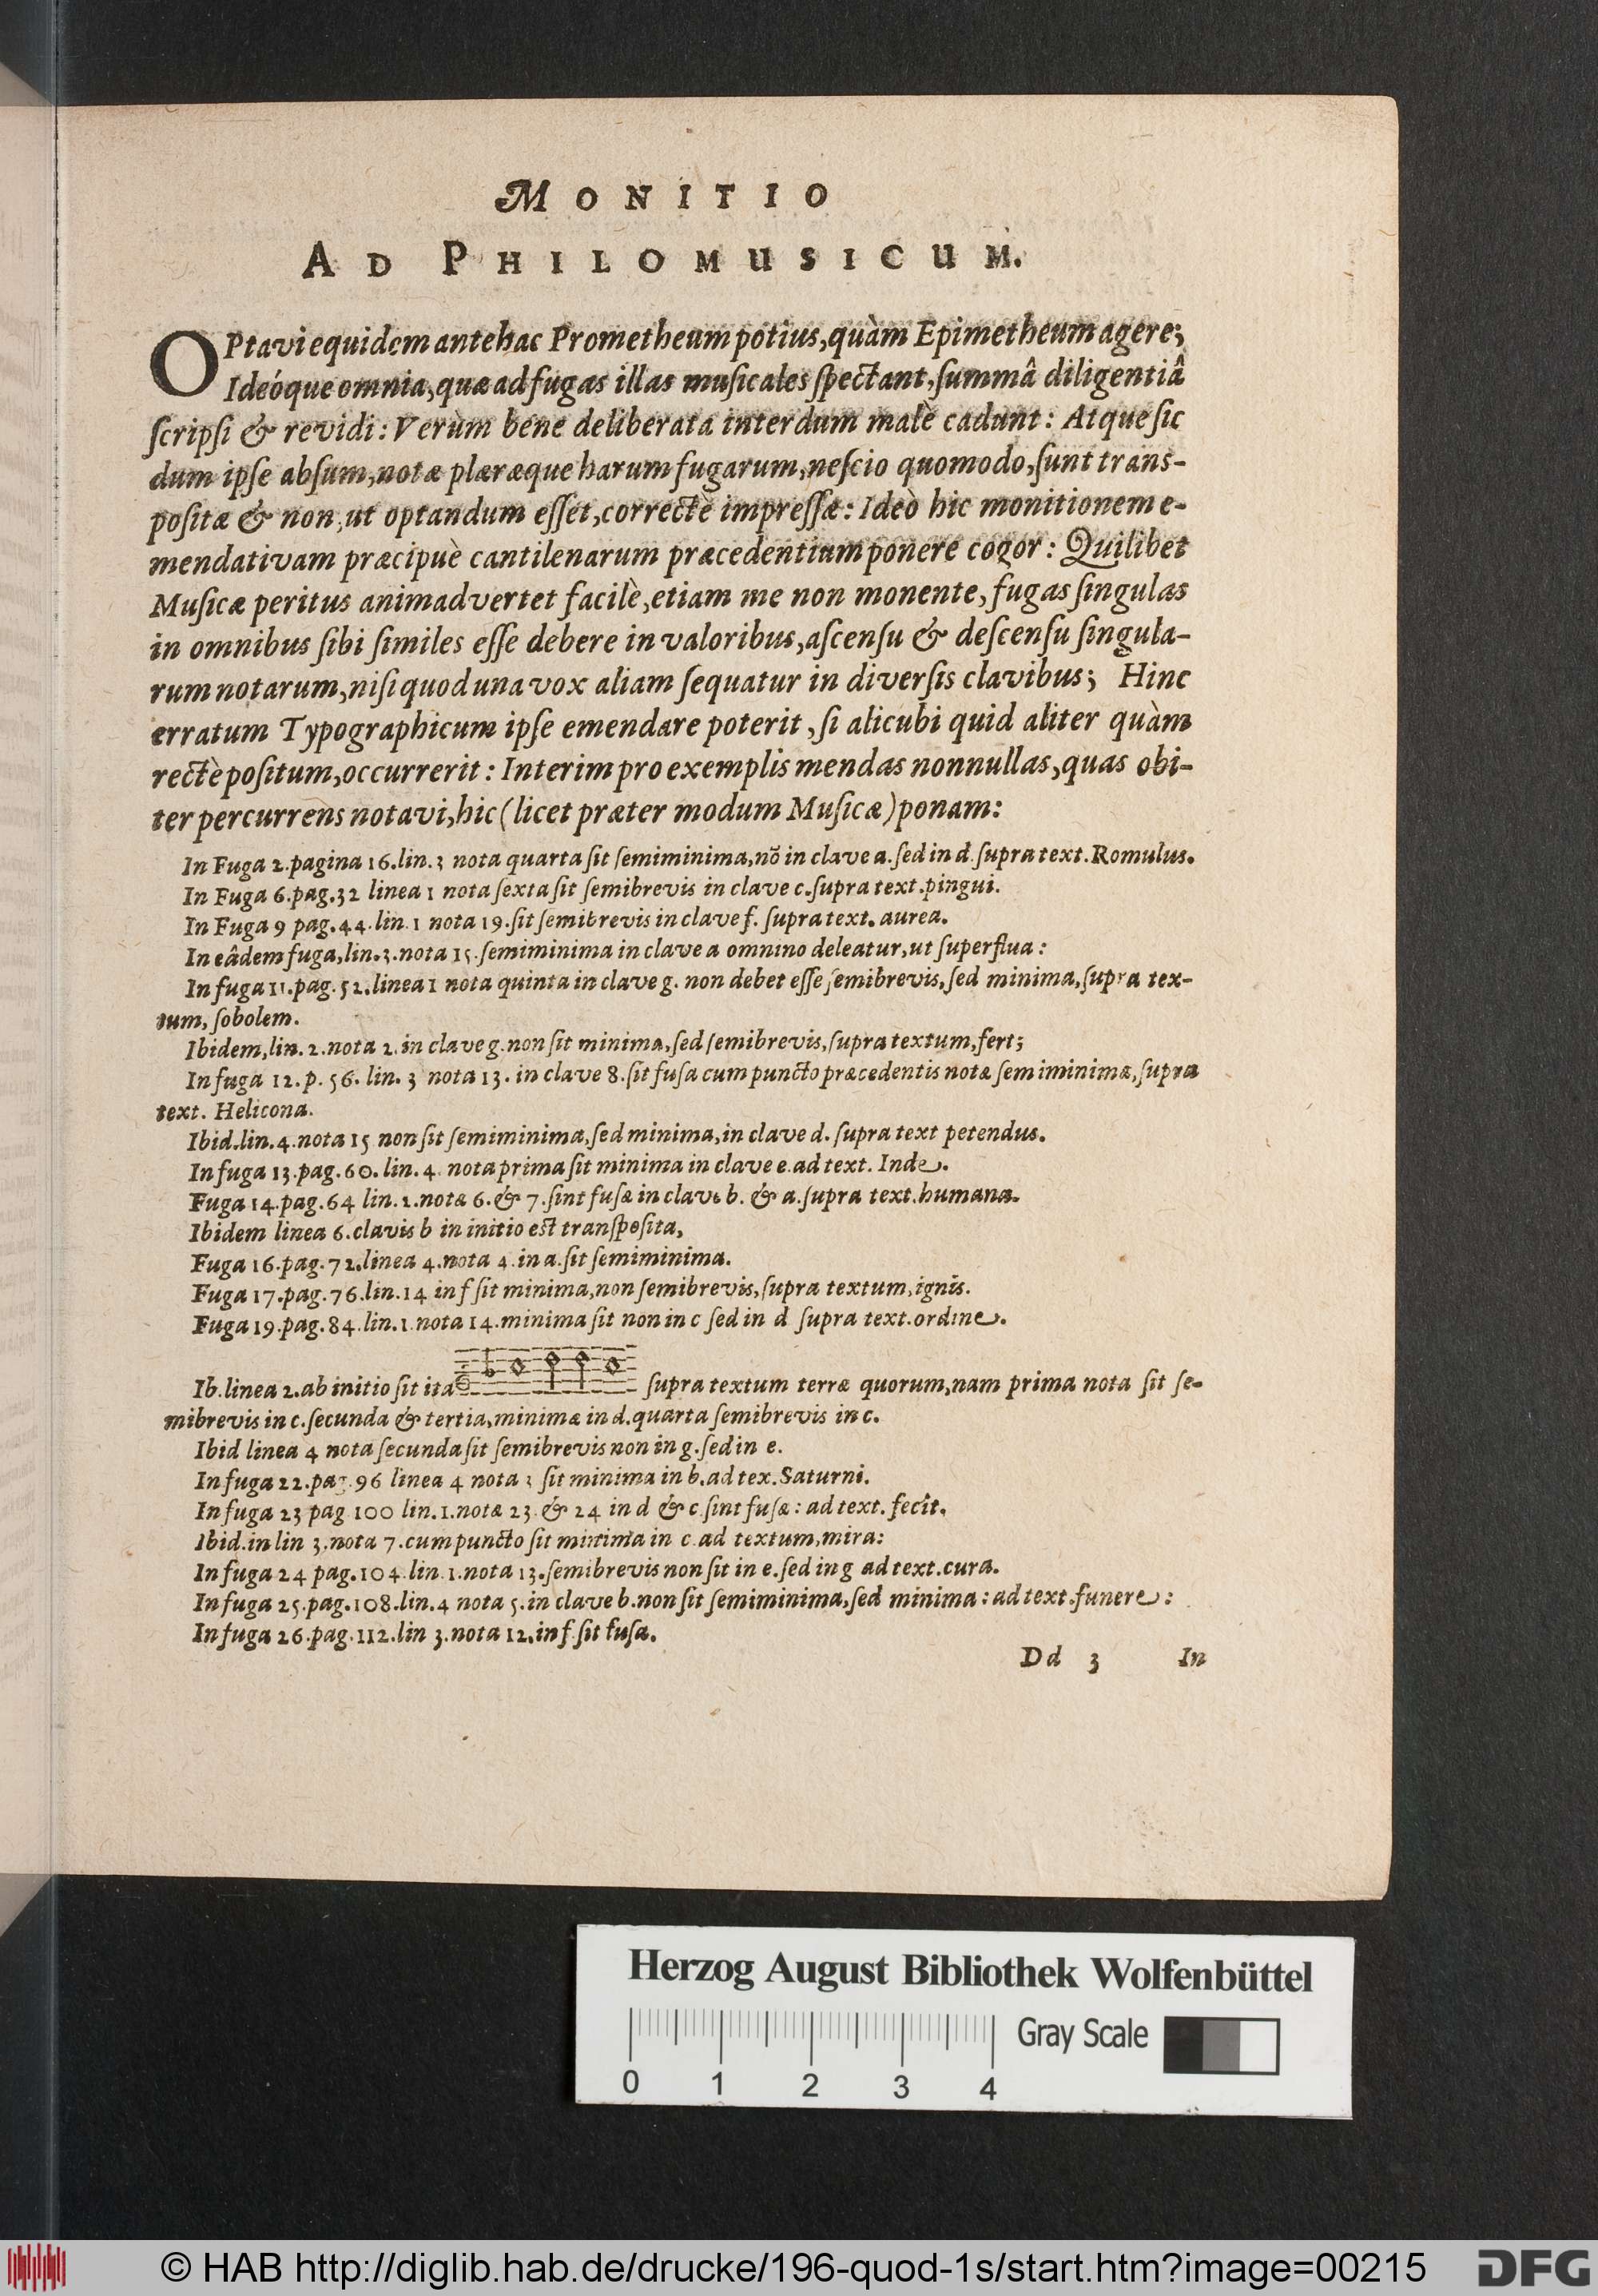 MONITIO
AD PHILOMUSICUM.
OPtavi equidem antehac Prometheum potius, quàm Epimetheum agere;
Ideóque omnia, quæ ad fugas illas muſicales ſpectant, ſummâ diligentiâ
ſcripſi & revidi: Verùm bene deliberata interdum malè cadunt: Atque ſic
dum ipſe abſum, notæ plæræque harum fugarum, neſcio quomodo, ſunt trans-
poſitæ & non, ut optandum eſſet, correctè impreſſæ: Ideò hic monitionem e-
mendativam præcipuè cantilenarum præcedentium ponere cogor: Quilibet
Muſicæ peritus animadvertet facilè, etiam me non monente, fugas ſingulas
in omnibus ſibi ſimiles eſſe debere in valoribus, aſcenſu & deſcenſu ſingula-
rum notarum, niſi quod una vox aliam ſequatur in diverſis clavibus; Hinc
erratum Typographicum ipſe emendare poterit, ſi alicubi quid aliter quàm
rectè poſitum, occurrerit: Interim pro exemplis mendas nonnullas, quas obi-
ter percurrens notavi, hic (licet præter modum Muſicæ) ponam:
In Fuga 2. pagina 16. lin. 3 nota quarta ſit ſemiminima, nõ in clave a. ſed in d. ſupra text. Romulus.
In Fuga 6. pag. 32 linea 1 nota ſexta ſit ſemibrevis in clave c. ſupra text. pingui.
In Fuga 9 pag. 44. lin. 1 nota 19. ſit ſemibrevis in clave f. ſupra text. aurea.
In eâdem fuga, lin. 3. nota 15. ſemiminima in clave a omnino deleatur, ut ſuperflua:
In fuga 11. pag. 52. linea 1 nota quinta in clave g. non debet eſſe ſemibrevis, ſed minima, ſupra tex-
tum, ſobolem.
Ibidem, lin. 2. nota 2. in clave g. non ſit minima, ſed ſemibrevis, ſupra textum, fert;
In fuga 12. p. 56. lin. 3 nota 13. in clave 8. ſit fuſa cum puncto præcedentis notæ ſemiminimæ, ſupra
text. Helicona.
Ibid. lin. 4. nota 15 non ſit ſemiminima, ſed minima, in clave d. ſupra text petendus.
In fuga 13. pag. 60. lin. 4. nota prima ſit minima in clave e. ad text. Inde.
Fuga 14. pag. 64 lin. 2. notæ 6. & 7. ſint fuſæ in clave b. & a. ſupra text. humana.
Ibidem linea 6. clavis b in initio est tranſpoſita,
Fuga 16. pag. 72. linea 4. nota 4. in a. ſit ſemiminima.
Fuga 17. pag. 76. lin. 14 in f ſit minima, non ſemibrevis, ſupra textum, ignis.
Fuga 19. pag. 84. lin. 1. nota 14. minima ſit non in c ſed in d ſupra text. ordine.
Ib. linea 2. ab initio ſit ita ſupra textum terræ quorum, nam prima nota ſit ſe-
mibrevis in c. ſecunda & tertia, minimæ in d. quarta ſemibrevis in c.
Ibid linea 4 nota ſecunda ſit ſemibrevis non in g. ſed in e.
In fuga 22. pag. 96 linea 4 nota 3 ſit minima in b. ad tex. Saturni.
In fuga 23 pag 100 lin. 1. notæ 23. & 24 in d & c ſint fuſæ: ad text. fecit.
Ibid. in lin 3. nota 7. cum puncto ſit minima in c. ad textum, mira:
In fuga 24 pag. 104. lin. 1. nota 13. ſemibrevis non ſit in e. ſed in g ad text. cura.
In fuga 25. pag. 108. lin. 4 nota 5. in clave b. non ſit ſemiminima, ſed minima: ad text. funere:
In fuga 26. pag. 112. lin 3. nota 12. in f. ſit fuſa.
Dd 3 In
Herzog August Bibliothek Wolfenbüttel
Gray Scale
0 1 2 3 4
© HAB http://diglib.hab.de/drucke/196-quod-1s/start.htm?image=00215
DFG